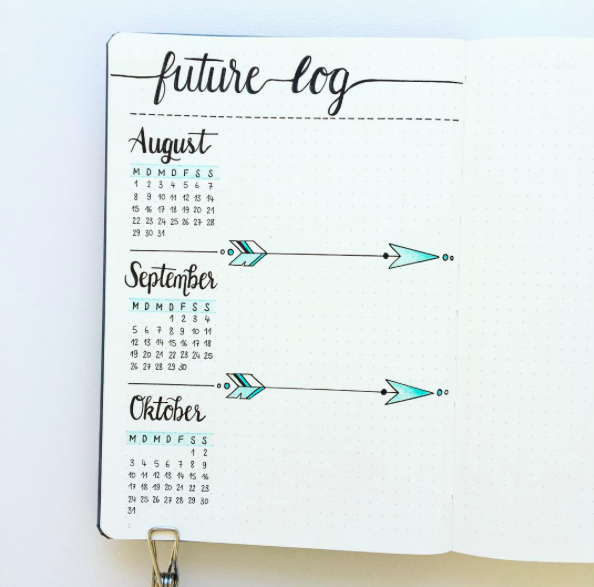 future log
August
M D M D F S S
1 2 3 4 5 6 7
8 9 10 11 12 13 14
15 16 17 18 19 20 21
22 23 24 25 26 27 28
29 30 31
September
M D M D F S S
1 2 3 4
5 6 7 8 9 10 11
12 13 14 15 16 17 18
19 20 21 22 23 24 25
26 27 28 29 30
Oktober
M D M D F S S
1 2
3 4 5 6 7 8 9
10 11 12 13 14 15 16
17 18 19 20 21 22 23
24 25 26 27 28 29 30
31